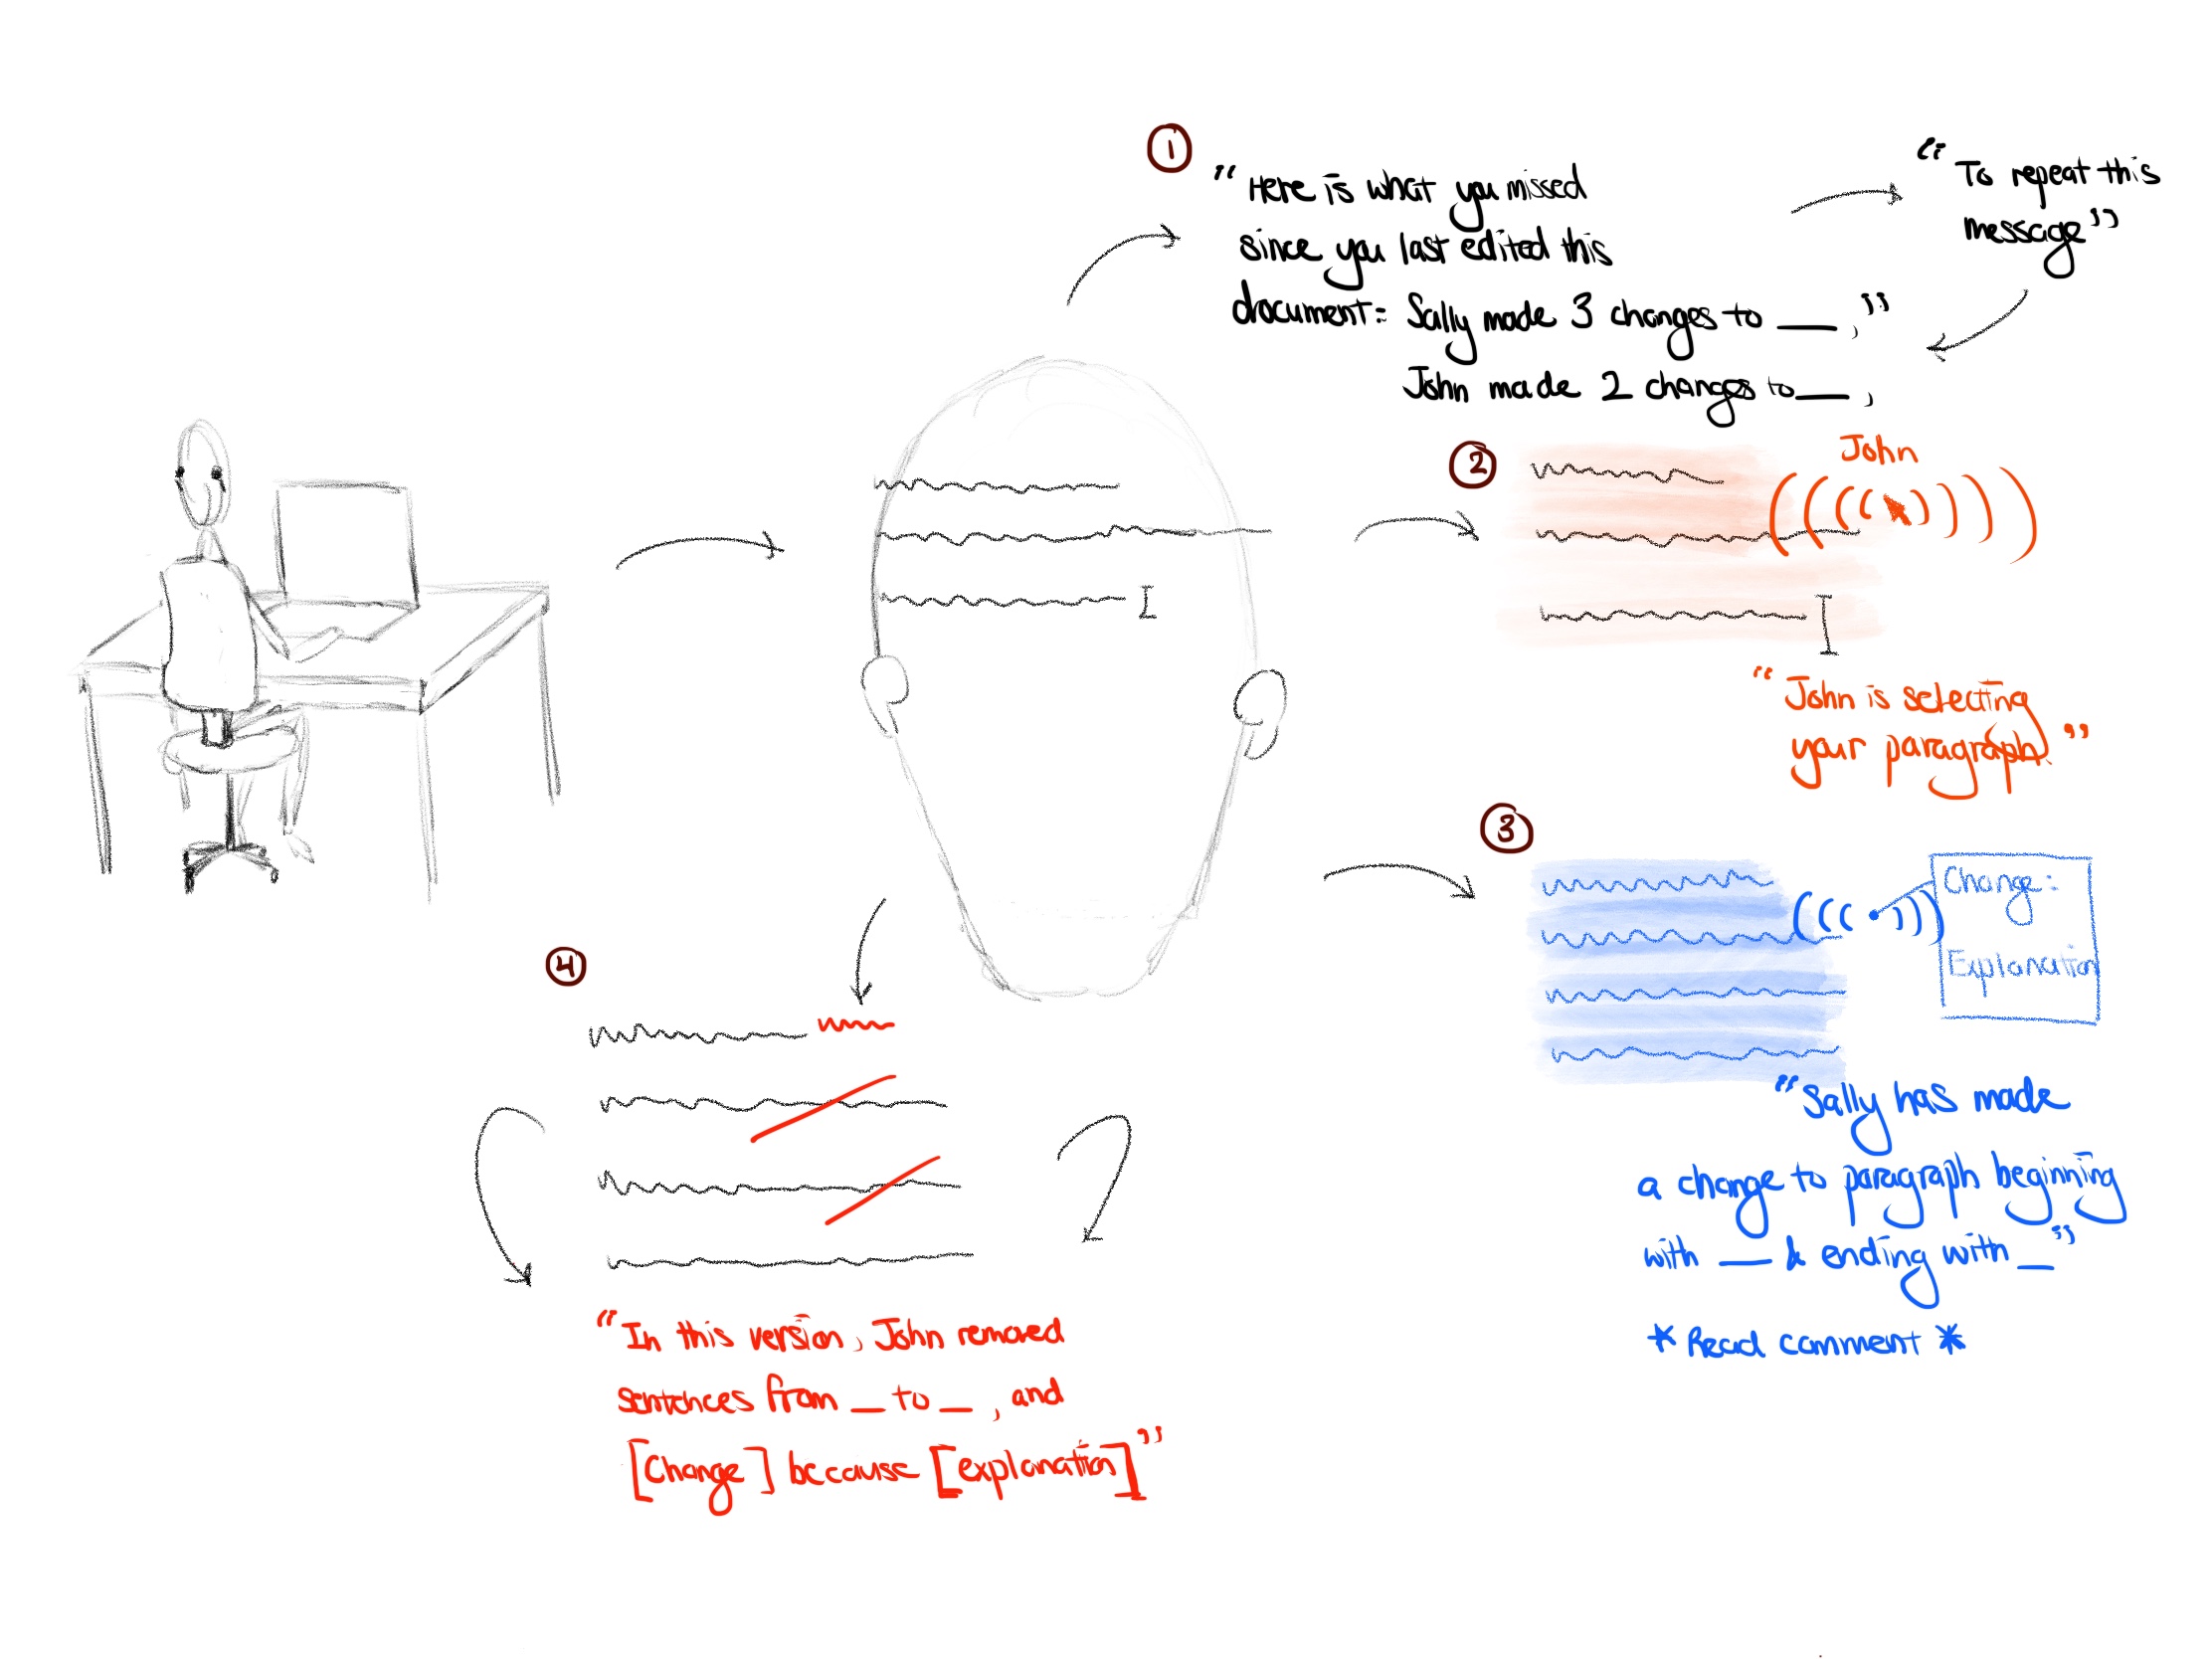 1
"Here is what you missed
since you last edited this
document: Sally made 3 changes to __,"
John made 2 changes to __,
"To repeat this
message"
2
John
"John is selecting
your paragraph"
3
Change:
Explanation
"Sally has made
a change to paragraph beginning
with __ & ending with __"
*Read comment*
4
"In this version, John removed
sentences from __ to __, and
[Change] because [explanation]"